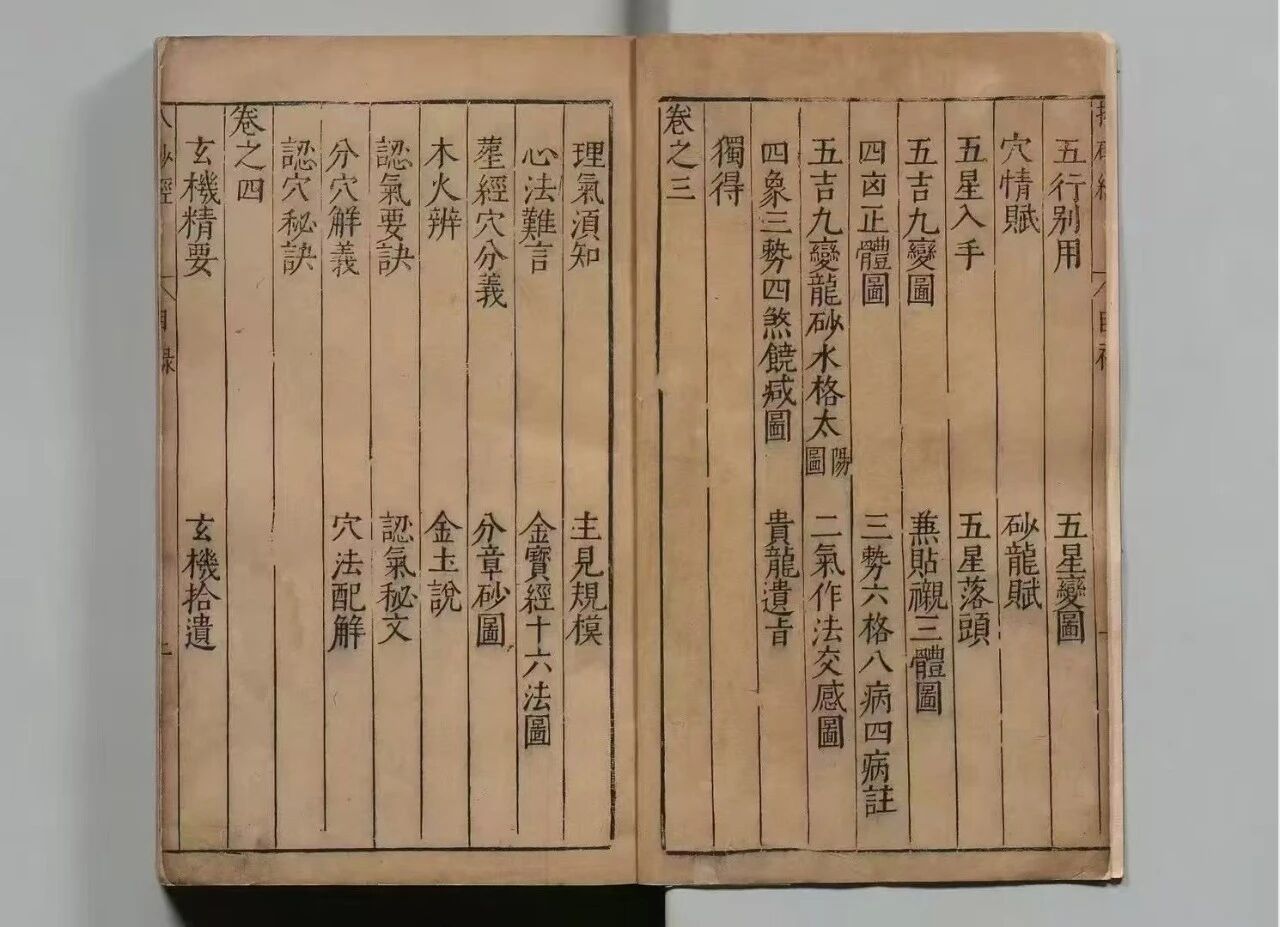 五行别用　五星變圖
穴情賦　砂龍賦
五星入手　五星落頭
五吉九變圖　兼貼襯三體圖
四凶正體圖　三勢六格八病四病註
五吉九變龍砂水格太陽圖　二氣作法交感圖
四象三勢四煞饒减圖　貴龍遺旨
獨得
卷之三
理氣須知　主見規模
心法難言　金寶經十六法圖
塟經穴分義　分章砂圖
木火辨　金玉說
認氣要訣　認氣秘文
分穴解義　穴法配解
認穴秘訣
卷之四
玄機精要　玄機拾遺